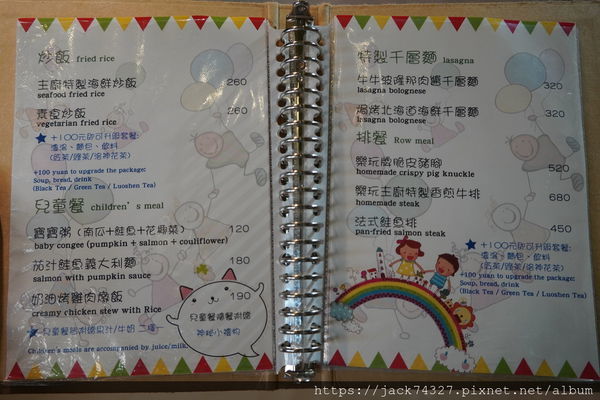 炒飯 fried rice
主廚特製海鮮炒飯 260
seafood fried rice
素食炒飯 260
vegetarian fried rice
+100元即可升級套餐:
濃湯、麵包、飲料
+100 yuan to upgrade the package:
Soup, bread, drink
(Black Tea / Green Tea / Luoshen Tea)
兒童餐 children's meal
寶寶粥(南瓜+鮭魚+花椰菜) 120
baby congee (pumpkin + salmon + couliflower)
茄汁鮭魚義大利麵 180
salmon with pumpkin sauce
奶油烤雞肉燉飯 190
creamy chicken stew with Rice
兒童餐附贈果汁/牛奶 二擇一
Children's meals are accompanied by juice/milk
兒童餐隨餐附贈
神秘小禮物
特製千層麵 lasagna
牛牛波隆那肉醬千層麵 320
lasagna bolognese
焗烤北海道海鮮千層麵 320
lasagna bolognese
排餐 Row meal
樂玩德脆皮豬腳 520
homemade crispy pig knuckle
樂玩主廚特製香煎牛排 680
homemade steak
法式鮭魚排 450
pan-fried salmon steak
+100元即可升級套餐:
濃湯、麵包、飲料
+100 yuan to upgrade the package:
Soup, bread, drink
(Black Tea / Green Tea / Luoshen Tea)
https://jack74327.pixnet.net/album